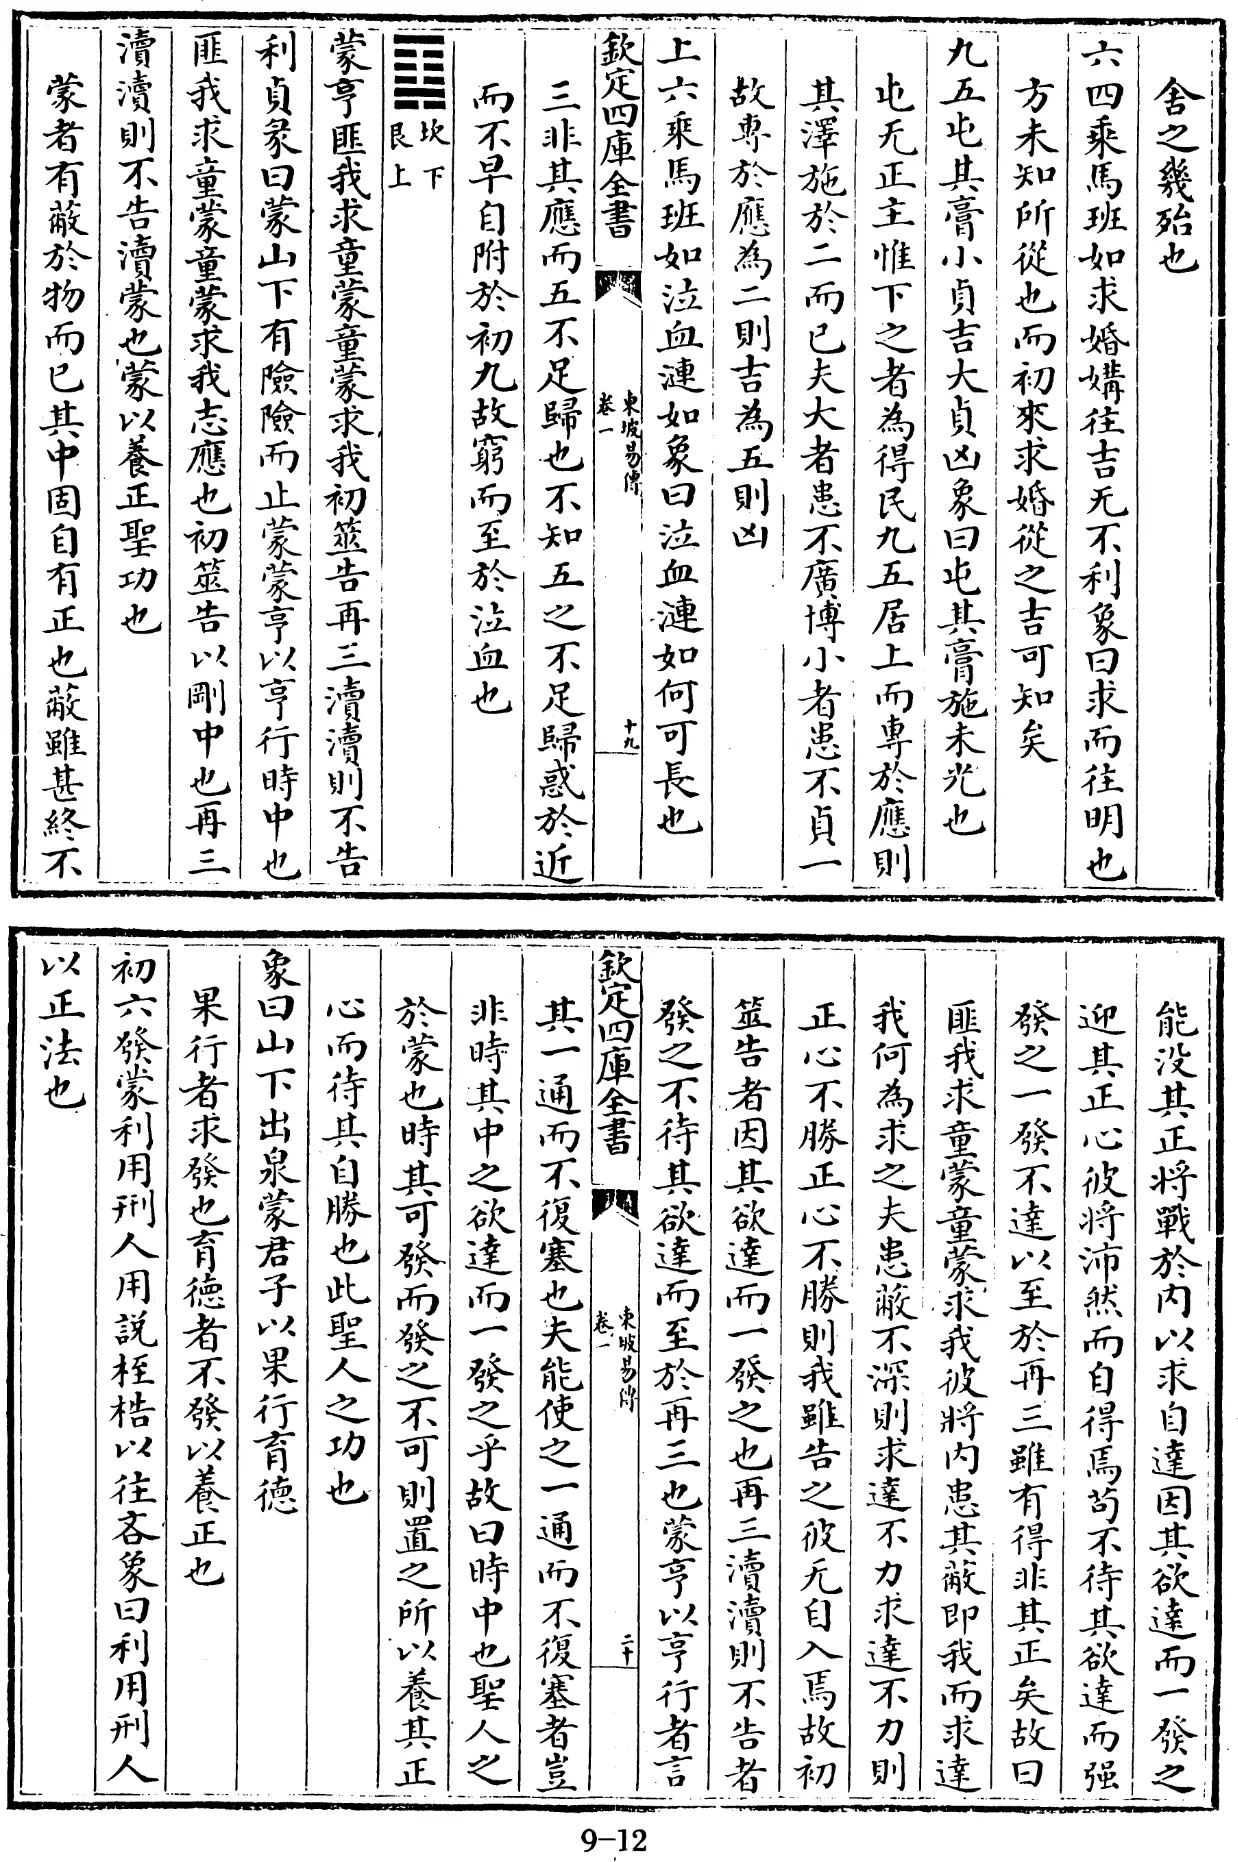 舍之幾殆也
六四乘馬班如求婚媾往吉无不利象曰求而往明也
方未知所從也而初來求婚從之吉可知矣
九五屯其膏小貞吉大貞凶象曰屯其膏施未光也
屯无正主惟下之者為得民九五居上而專於應則
其澤施於二而已夫大者患不廣博小者患不貞一
故專於應為二則吉為五則凶
上六乘馬班如泣血漣如象曰泣血漣如何可長也
欽定四庫全書
東坡易傳
卷一
十九
三非其應而五不足歸也不知五之不足歸惑於近
而不早自附於初九故窮而至於泣血也
坎下
艮上
蒙亨匪我求童蒙童蒙求我初筮告再三瀆瀆則不告
利貞彖曰蒙山下有險險而止蒙蒙亨以亨行時中也
匪我求童蒙童蒙求我志應也初筮告以剛中也再三
瀆瀆則不告瀆蒙也蒙以養正聖功也
蒙者有蔽於物而已其中固自有正也蔽雖甚終不
能没其正將戰於内以求自達因其欲達而一發之
迎其正心彼將沛然而自得焉苟不待其欲達而强
發之一發不達以至於再三雖有得非其正矣故曰
匪我求童蒙童蒙求我彼將内患其蔽即我而求達
我何為求之夫患蔽不深則求達不力求達不力則
正心不勝正心不勝則我雖告之彼无自入焉故初
筮告者因其欲達而一發之也再三瀆瀆則不告者
發之不待其欲達而至於再三也蒙亨以亨行者言
欽定四庫全書
東坡易傳
卷一
二十
其一通而不復塞也夫能使之一通而不復塞者豈
非時其中之欲達而一發之乎故曰時中也聖人之
於蒙也時其可發而發之不可則置之所以養其正
心而待其自勝也此聖人之功也
象曰山下出泉蒙君子以果行育德
果行者求發也育德者不發以養正也
初六發蒙利用刑人用説桎梏以往吝象曰利用刑人
以正法也
9-12